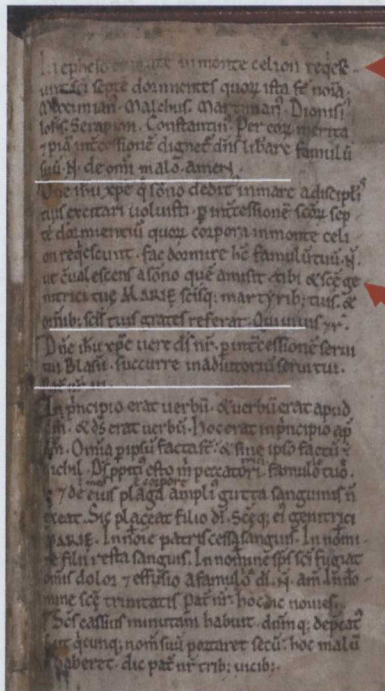 In epheso ciuitate in monte celion reqese
unt sci septē dormientes quoꝝ ista st̄ noīa
Maximian᷒. Malchus. Martinian᷒. Dionisi᷒
Ioħs. Serapion. Constantin᷒. Per eoꝝ merita
⁊ piā int̄cessionē dignet᷒ dn̄s liƀare famulū
suū .N̄. de om̄i malo. amen.
Dn̄e ihu xp̄e q̄ sōno dedit᷒ in mare a discipl̄is
tuis excitari uoluisti. ꝑ int̄cessionē scoꝝ sep
tē dormientiū quoꝝ corpora in monte celi
on reqescunt. fac dormire hc̄ famulū tuū .N̄.
ut cualescens a sōno quē amisit tibi & scē ge
nitrici tue MARIE scisq; martyrib; tuis. &
om̄ib; scīs tuis grates referat. Qui uiuis ⁊r̄.
Dn̄e ihu xp̄e uere ds̄ nr̄. ꝑ int̄cessionē serui
tui Blasii. succurre in adiutoriū serui tui.
In pncipio erat uerbū. & uerbū erat apud
dm̄. & ds̄ erat uerbū. hoc erat in pncipio ap
dm̄. Omīa ꝑ ipsū facta st̄. & sine ipso factū ē
nichil. Ds̄ ppiti᷒ esto m̄ peccatori famulo tuo.
corpore
⁊ de ei᷒ plaga ampli᷒ gutta sanguinis n̄
exeat. Sic placeat filio dī. Scēq; ei᷒ genitrici
MARIE. In noīe patris cessa sanguis. In nomi
ne filii resta sanguis. In nomine sp̄s sci fugiat
om̄is dolor ⁊ effusio a famulo dī .N̄. am̄. In no
mine scē trinitatis. Pat̄ nr̄. hoc dic nouies.
Scs̄ cassius minutam habuit. dm̄q; depcat᷒
fuit ut qcunq; nom̄ suū portaret secū. hoc malū
n̄ haberet. dic pat̄ nr̄ trib; uicib;.